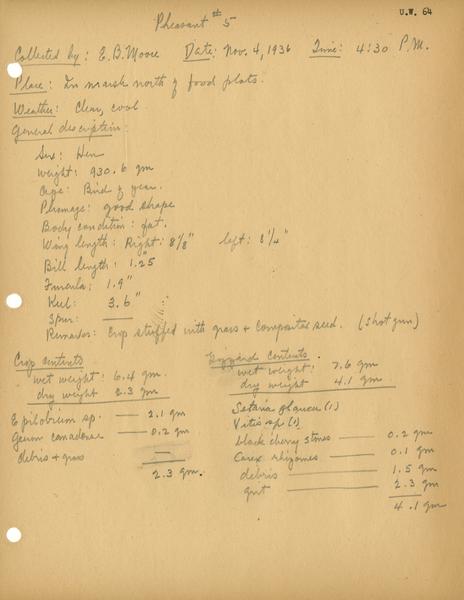 U.W. 64
Pheasant #5
Collected by: E.B. Moore Date: Nov. 4, 1936 Time: 4:30 P.M.
Place: In marsh north of food plots.
Weather: Clear, cool.
General description:
Sex: Hen
Weight: 930.6 gm
Age: Bird of year.
Plumage: good shape
Body condition: fat.
Wing length: Right: 8 1/8" left: 8 1/4"
Bill length: 1.25"
Furcula: 1.9"
Keel: 3.6"
Spur: ———
Remarks: Crop stuffed with grass & Composites seed. (Shot gun)
Crop contents
wet weight: 6.4 gm.
dry weight 2.3 gm.
Epilobium sp. — 2.1 gm
Geum canadense — 0.2 gm.
debris & grass —
2.3 gm.
Gizzard contents.
wet weight: 7.6 gm
dry weight 4.1 gm.
Setaria (1)
Vitis sp (1)
black cherry stones — 0.2 gm
Carex rhizomes — 0.1 gm
debris — 1.5 gm
grit — 2.3 gm
4.1 gm